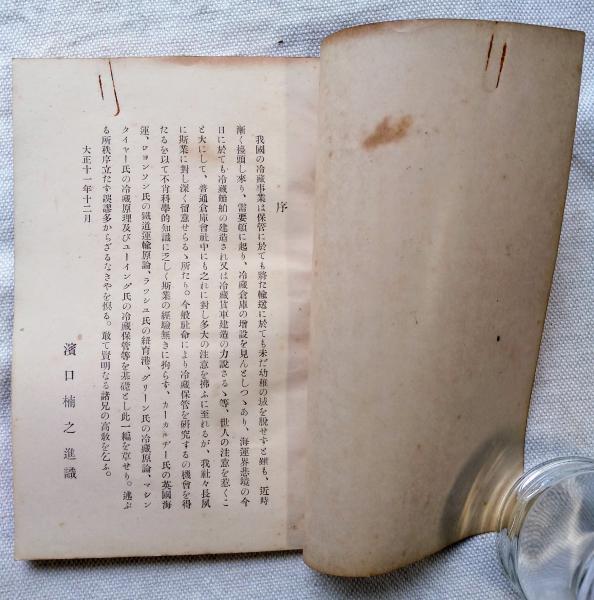 序
我國の冷藏事業は保管に於ても將た輸送に於ても未だ幼稚の域を脫せずと雖も、近時
漸く擡頭し來り、需要頓に起り、冷藏倉庫の增設を見んとしつゝあり、海運界悲境の今
日に於ても冷藏船舶の建造され又は冷藏貨車建造の力說さるゝ等、世人の注意を惹くこ
と大にして、普通倉庫會社中にも之れに對し多大の注意を拂ふに至れるが、我社々長夙
に斯業に對し深く留意せらるゝ所たり。今般社命により冷藏保管を硏究するの機會を得
たるを以て不肖科學的知識に乏しく斯業の經驗無きに拘らず、カーカルデー氏の英國海
運、ロヨンソン氏の鐵道運輸原論、ラッシュ氏の紐育港、グリーン氏の冷藏原論、マシン
タイヤー氏の冷藏原理及びユーイング氏の冷藏保管等を基礎とし此一編を草せり。述ぶ
る所秩序立たず誤謬多からざるなきやを恨る。敢て賢明なる諸兄の高敎を乞ふ。
大正十一年十二月
濱口楠之進識